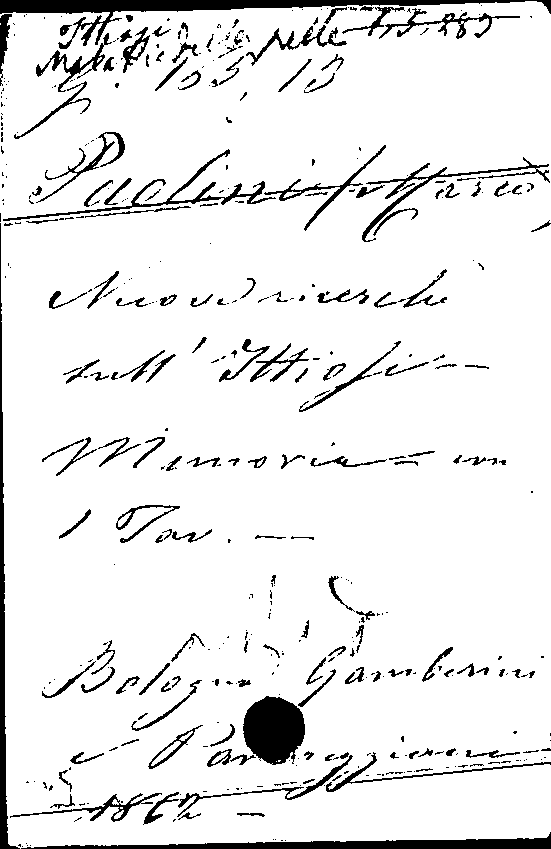 Ittiosi
Malattie della pelle
G. 155, 13
Paolini (Marco)
Nuove ricerche
sull' Ittiosi —
Memoria = con
1 Tav. —
Bologna Gamberini
e Parmeggiani
1862 —